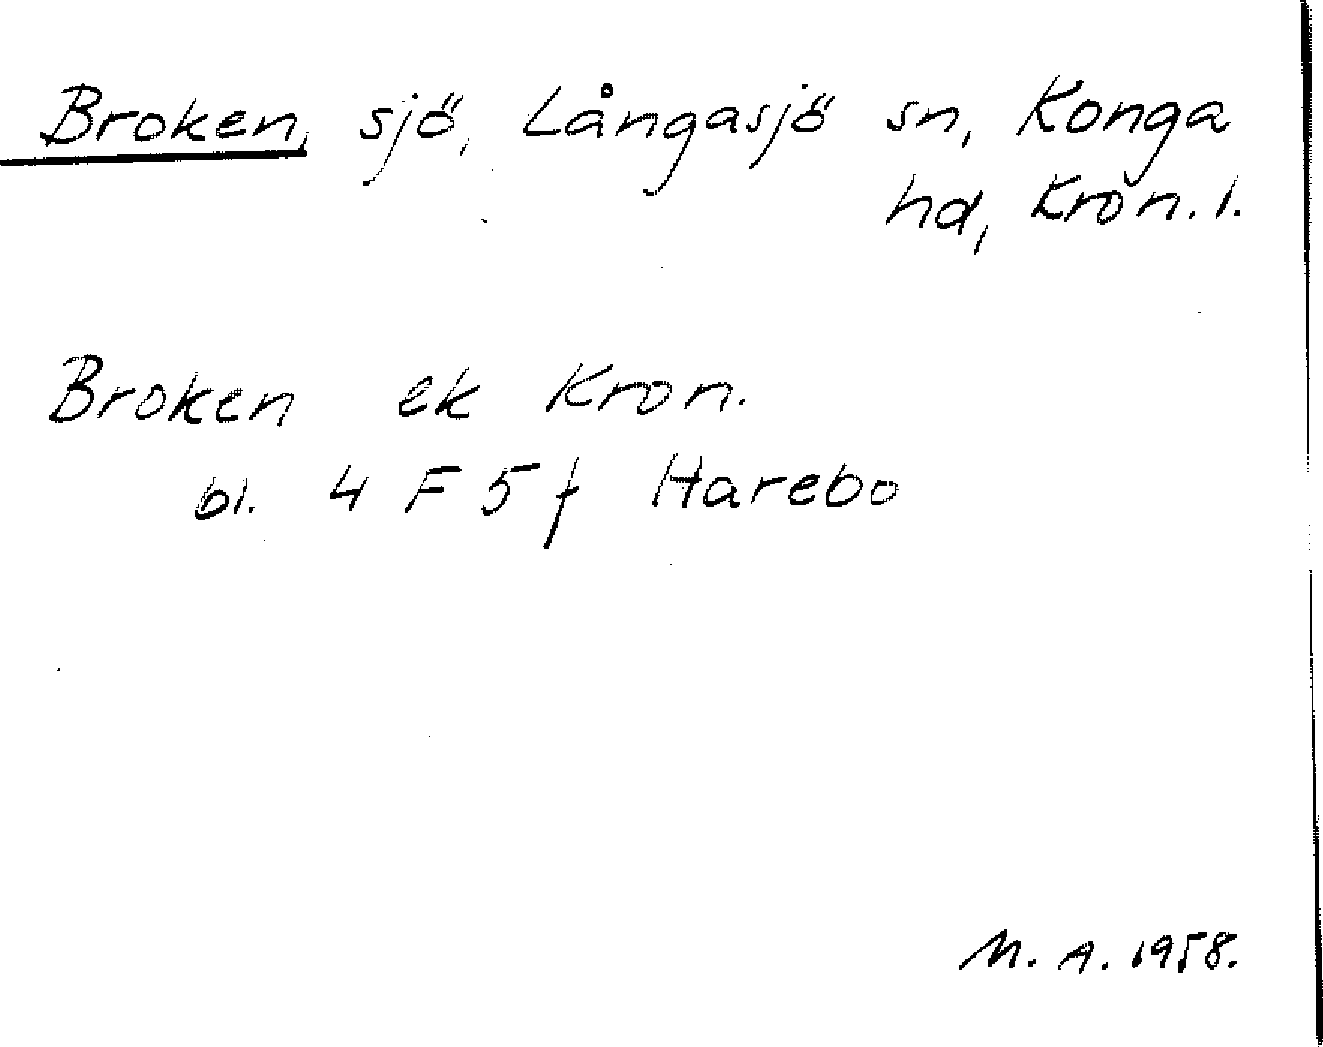 Broken, sjö, Långasjö sn, Konga
hd, Kron. l.
Broken ek Kron.
bl. 4 F 5 f Harebo
M. A. 1958.